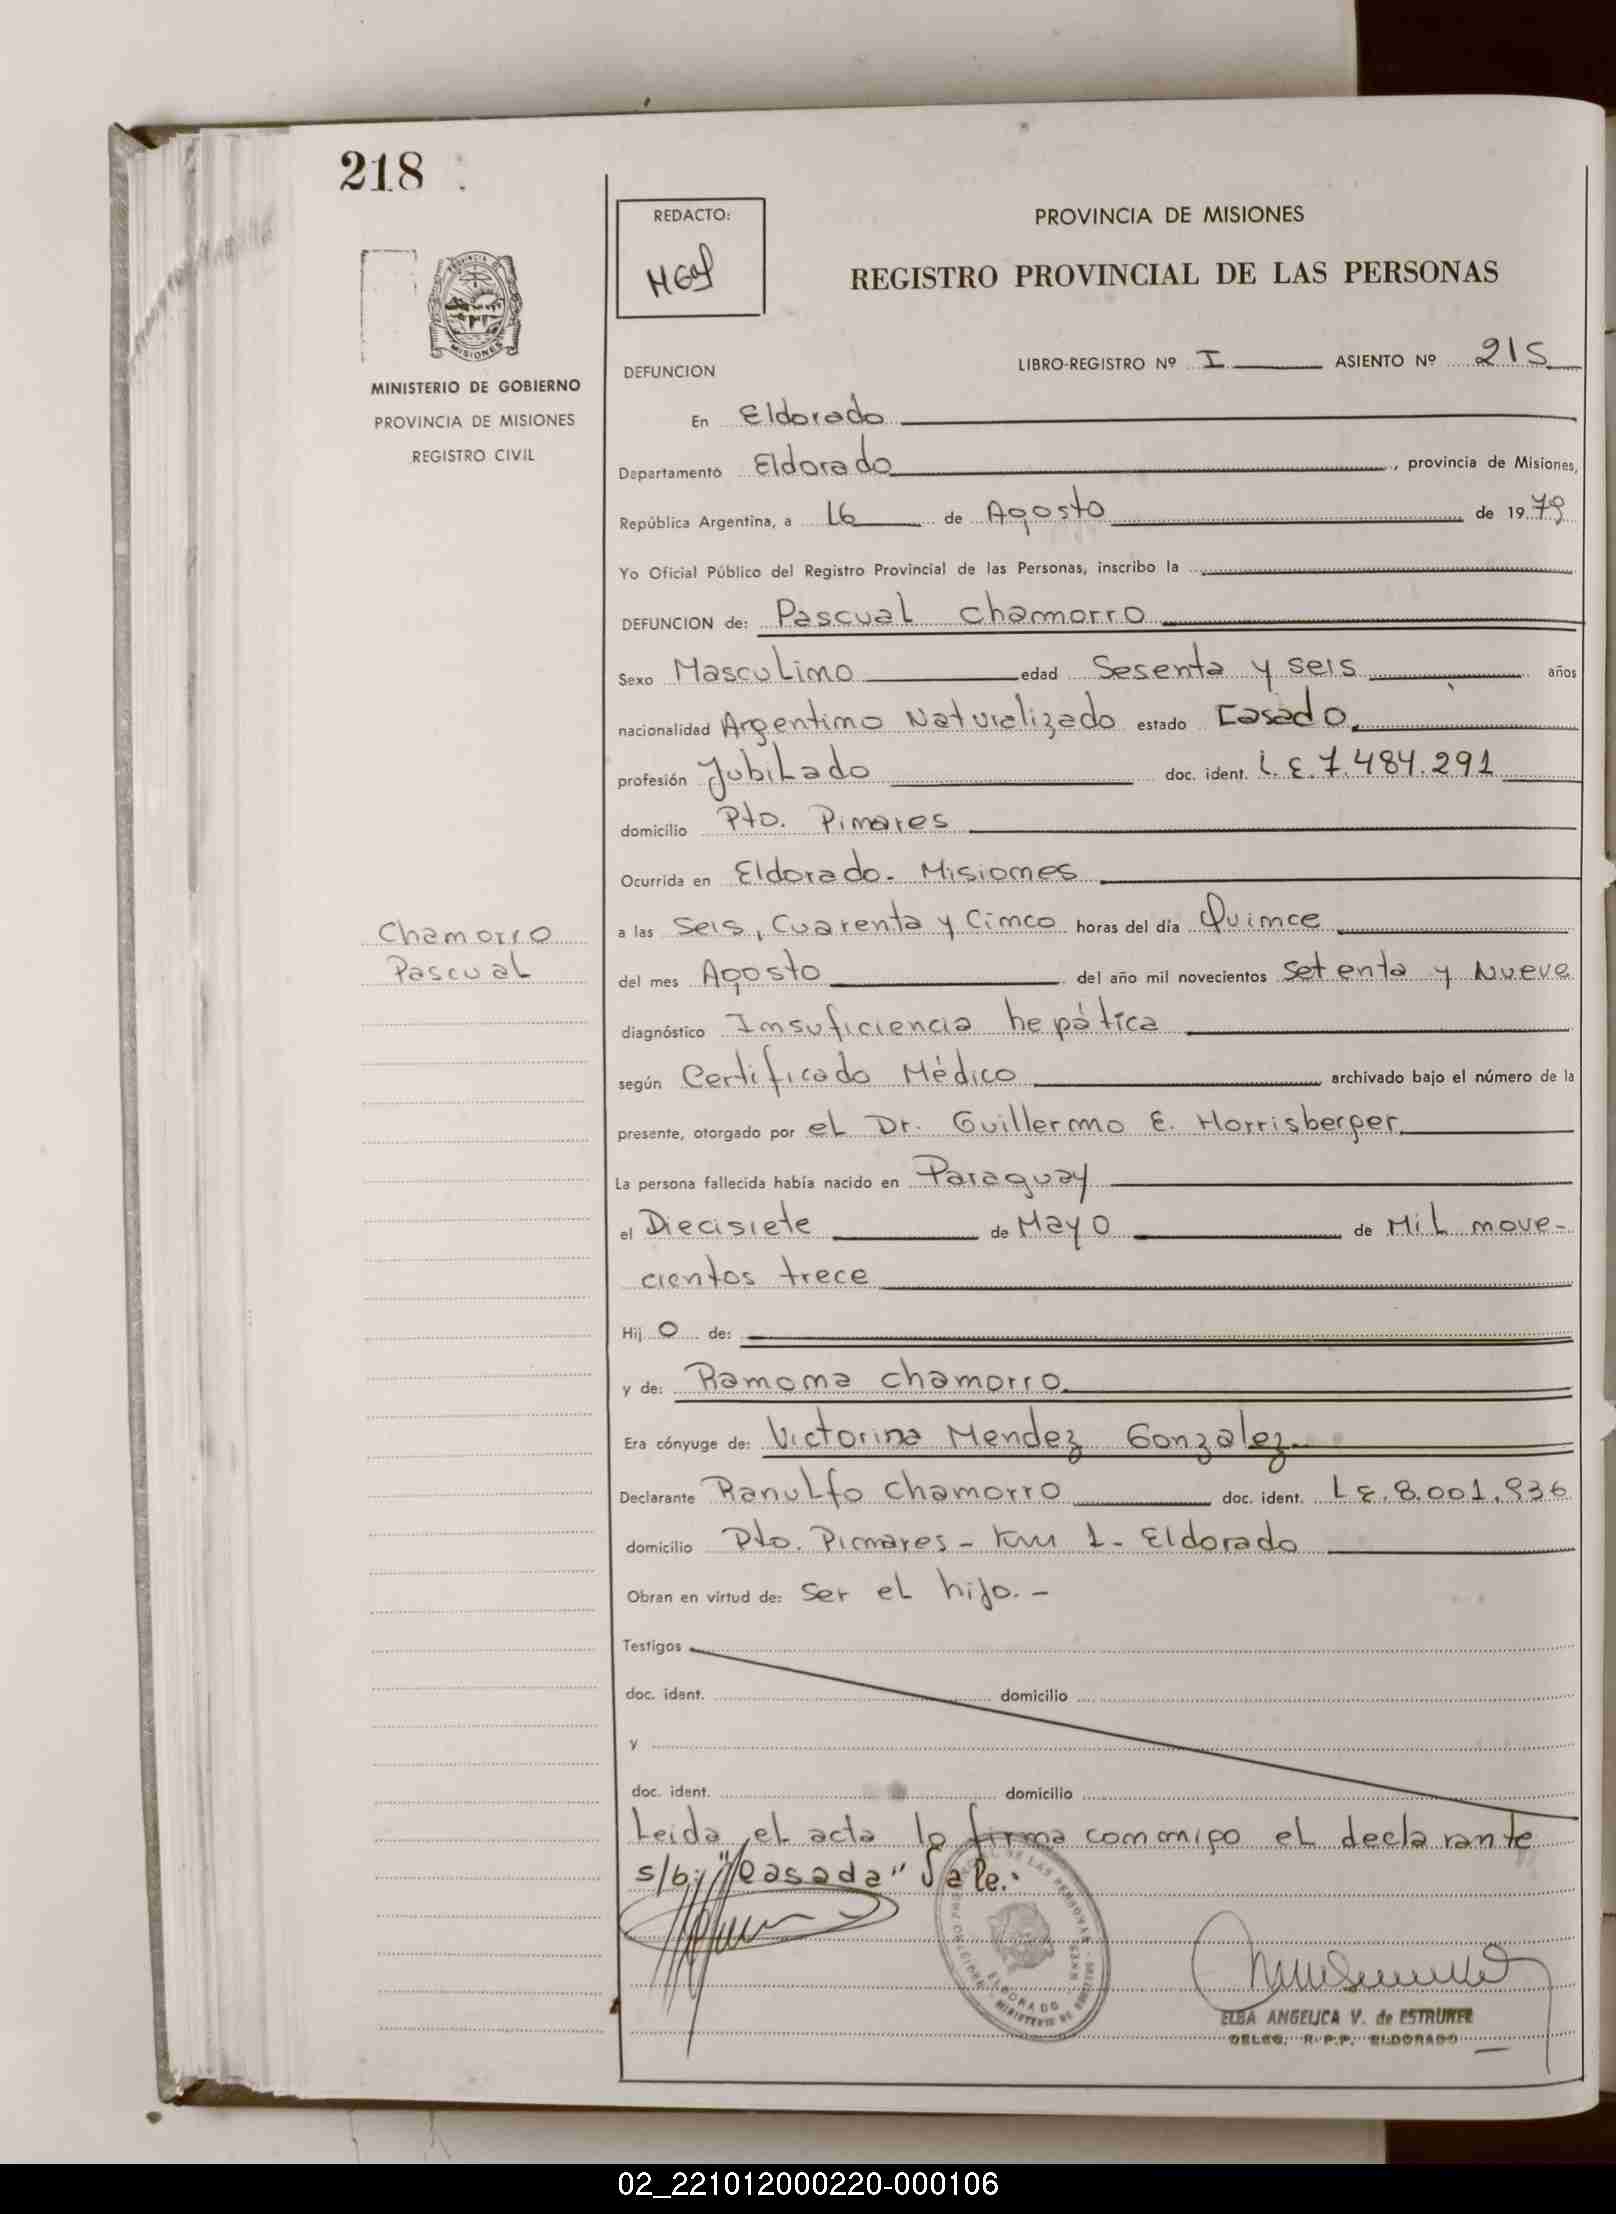 218
REDACTO:
PROVINCIA DE MISIONES
REGISTRO PROVINCIAL DE LAS PERSONAS
MISIONES
MINISTERIO DE GOBIERNO
PROVINCIA DE MISIONES
REGISTRO CIVIL
DEFUNCION
LIBRO-REGISTRO Nº I ASIENTO Nº 215
En Eldorado
Departamento Eldorado, provincia de Misiones,
República Argentina, a 16 de Agosto de 1979
Yo Oficial Público del Registro Provincial de las Personas, inscribo la
DEFUNCION de: Pascual Chamorro
Sexo Masculino edad Sesenta y seis años
nacionalidad Argentino Naturalizado estado Casado.
profesión Jubilado doc. ident. L.E. 7.484.291
domicilio Pto. Pinares
Ocurrida en Eldorado - Misiones
Chamorro
Pascual
a las Seis, Cuarenta y Cinco horas del día Quince
del mes Agosto del año mil novecientos Setenta y Nueve
diagnóstico Insuficiencia hepática
según Certificado Médico archivado bajo el número de la
presente, otorgado por el Dr. Guillermo E. Horrisberger.
La persona fallecida había nacido en Paraguay
el Diecisiete de Mayo de Mil nove-
cientos trece
Hij o de:
y de: Ramona Chamorro.
Era cónyuge de: Victorina Mendez Gonzalez.
Declarante Ranulfo Chamorro doc. ident. L.E. 8.001.936
domicilio Pto. Pinares - Km 1 - Eldorado
Obran en virtud de: Ser el hijo. -
Testigos
doc. ident. domicilio
y
doc. ident. domicilio
Leida el acta la firma conmigo el declarante
s/b: "Casada" Vale.
ELBA ANGELICA V. de ESTRUKEE
DELEG. R.P.P. ELDORADO
02_221012000220-000106